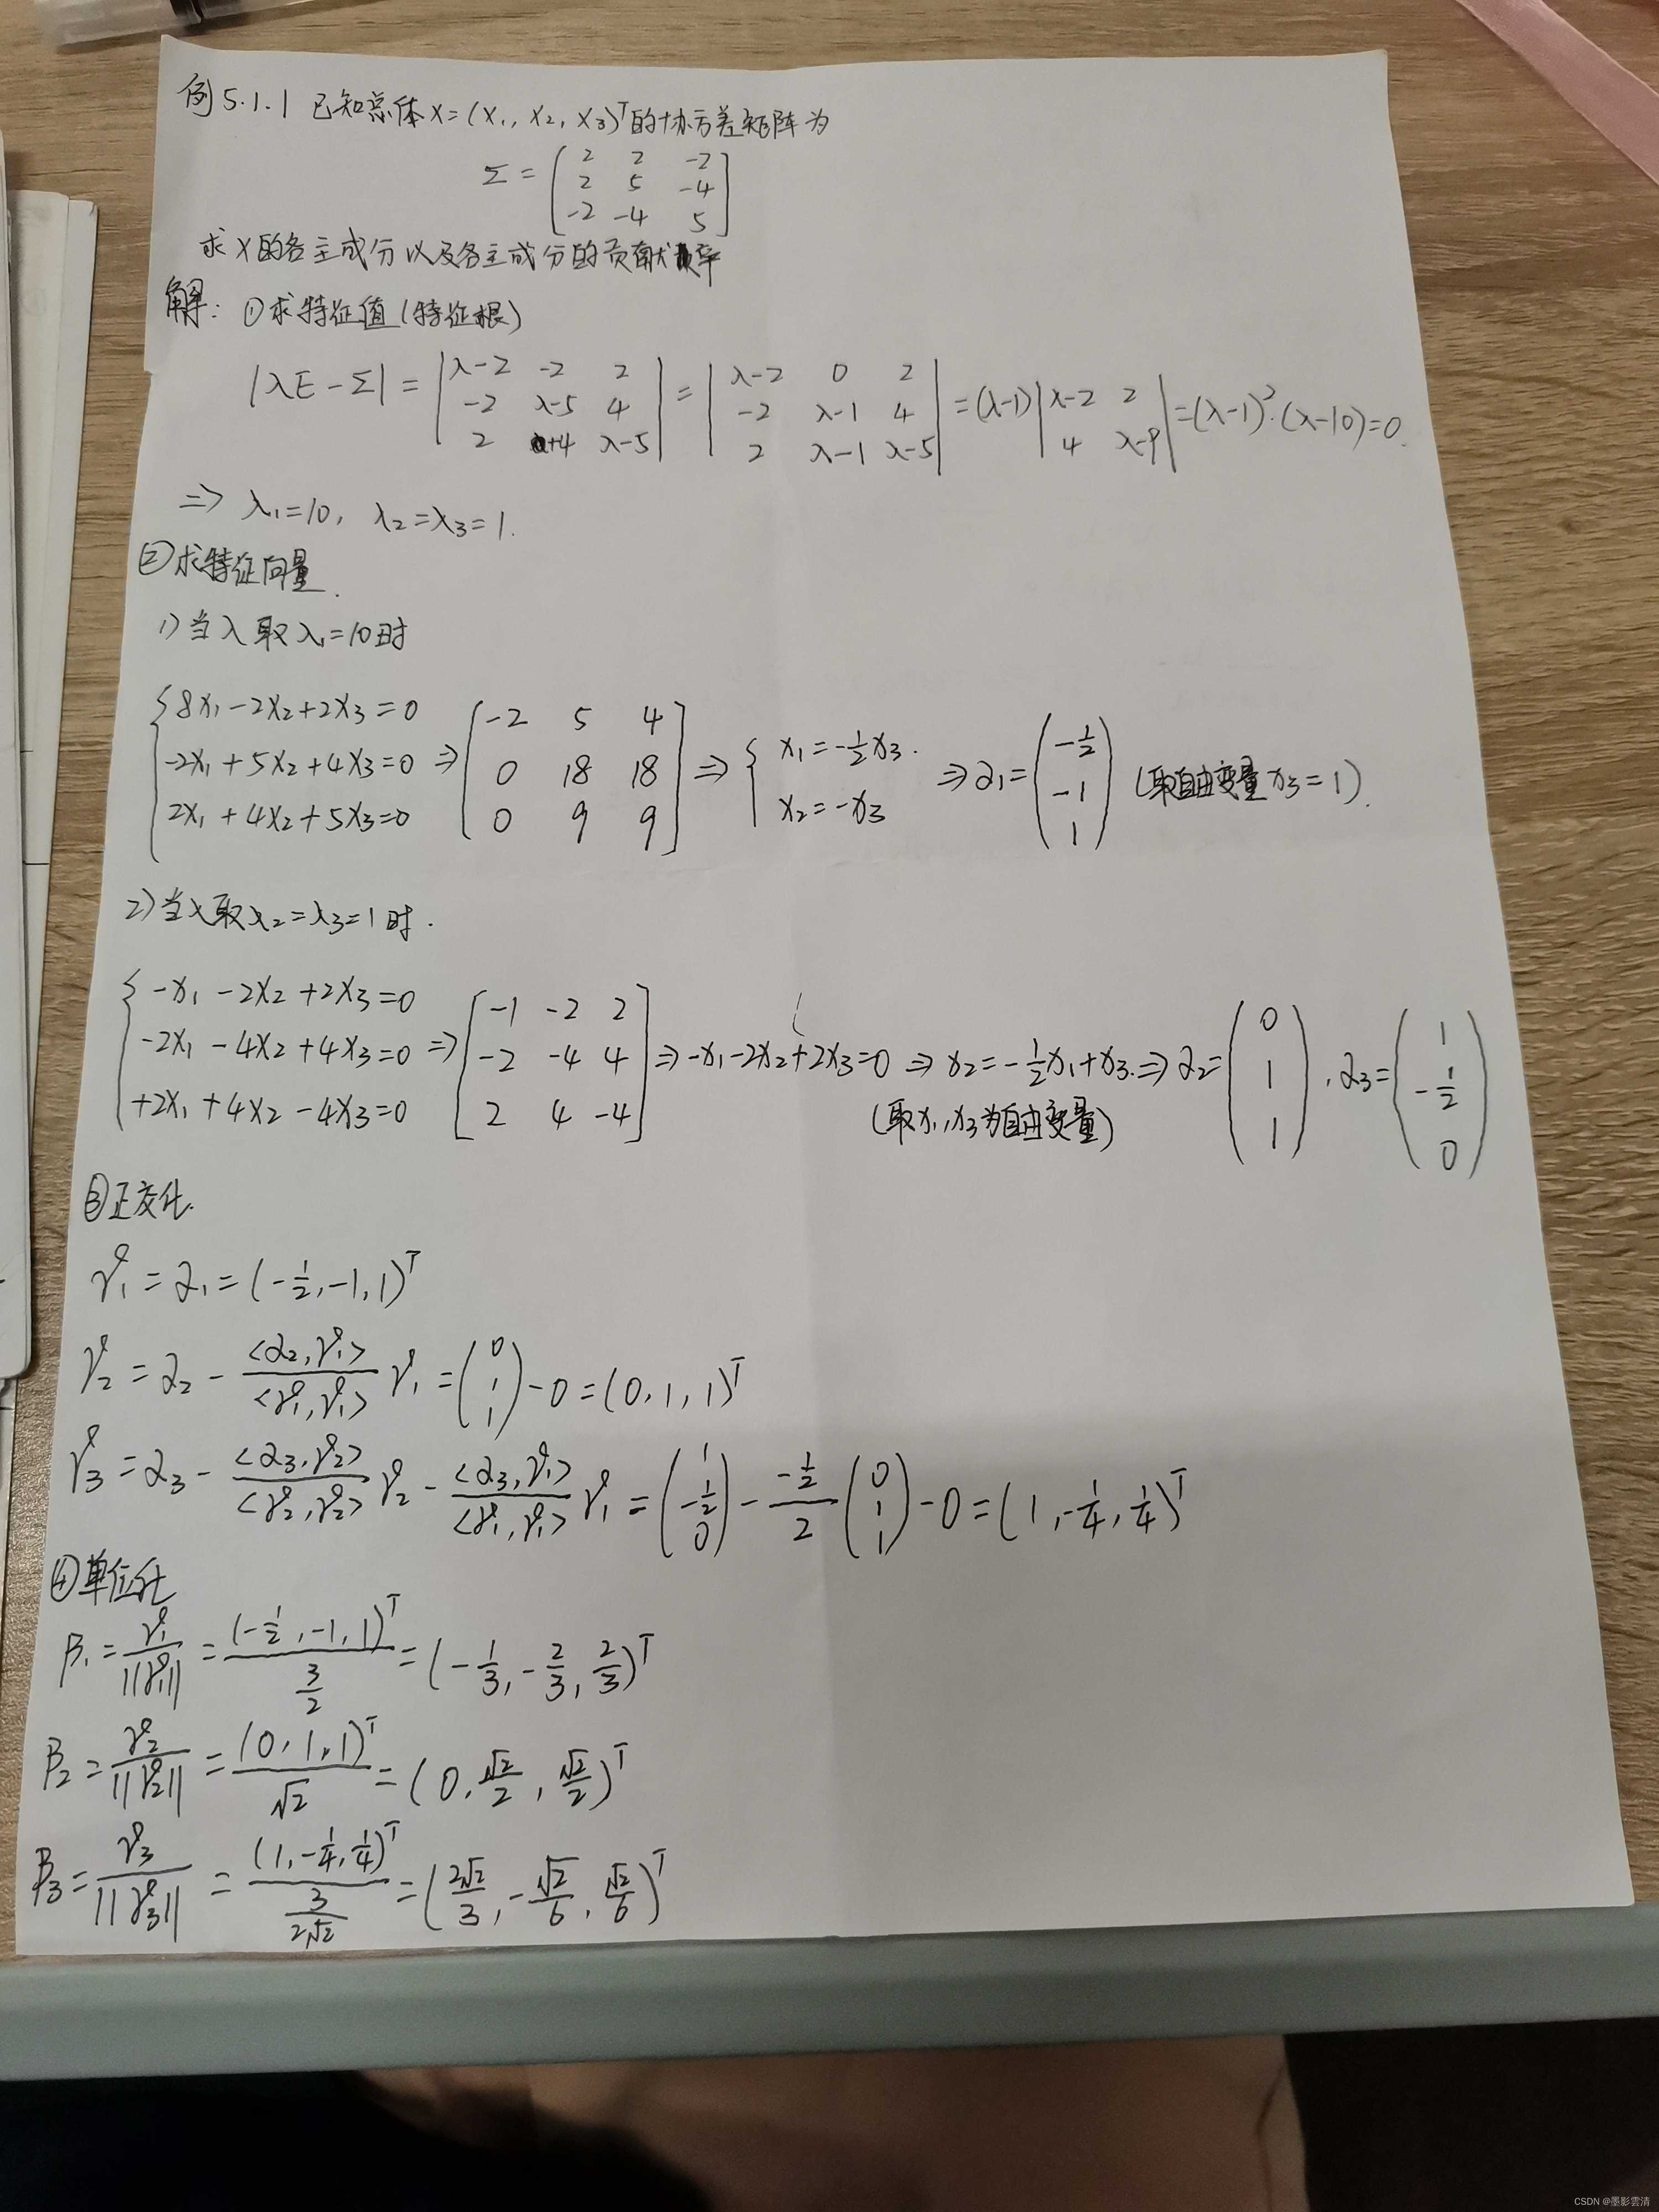 例5.1.1 已知总体X=(X₁, X₂, X₃)ᵀ的协方差矩阵为
Σ = [2 2 -2; 2 5 -4; -2 -4 5]
求X的各主成分以及各主成分的贡献率
解: ①求特征值(特征根)
|λE-Σ| = |λ-2 -2 2; -2 λ-5 4; 2 +4 λ-5| = |λ-2 0 2; -2 λ-1 4; 2 λ-1 λ-5| = (λ-1)|λ-2 2; 4 λ-9| = (λ-1)²·(λ-10)=0.
⇒ λ₁=10, λ₂=λ₃=1.
②求特征向量.
1)当λ取λ₁=10时
{8x₁-2x₂+2x₃=0; -2x₁+5x₂+4x₃=0; 2x₁+4x₂+5x₃=0 ⇒ [-2 5 4; 0 18 18; 0 9 9] ⇒ {x₁=-½x₃. x₂=-x₃ ⇒ α₁=(-½; -1; 1) (取自由变量x₃=1).
2)当λ取λ₂=λ₃=1时.
{-x₁-2x₂+2x₃=0; -2x₁-4x₂+4x₃=0; +2x₁+4x₂-4x₃=0 ⇒ [-1 -2 2; -2 -4 4; 2 4 -4] ⇒ -x₁-2x₂+2x₃=0 ⇒ x₂=-½x₁+x₃. ⇒ α₂=(0; 1; 1), α₃=(1; -½; 0)
(取x₁,x₃为自由变量)
③正交化.
γ₁=α₁=(-½,-1,1)ᵀ
γ₂=α₂-<α₂,γ₁>/<γ₁,γ₁> γ₁=(0; 1; 1)-0=(0,1,1)ᵀ
γ₃=α₃-<α₃,γ₂>/<γ₂,γ₂> γ₂-<α₃,γ₁>/<γ₁,γ₁> γ₁=(1; -½; 0)-(-½)/2 (0; 1; 1)-0=(1,-¼,¼)ᵀ
④单位化
β₁=γ₁/||γ₁||=(-½,-1,1)ᵀ/(3/2)=(-1/3,-2/3,2/3)ᵀ
β₂=γ₂/||γ₂||=(0,1,1)ᵀ/√2=(0,√2/2,√2/2)ᵀ
β₃=γ₃/||γ₃||=(1,-¼,¼)ᵀ/(3/(2√2))=(2√2/3,-√2/6,√2/6)ᵀ
CSDN @墨影雲清